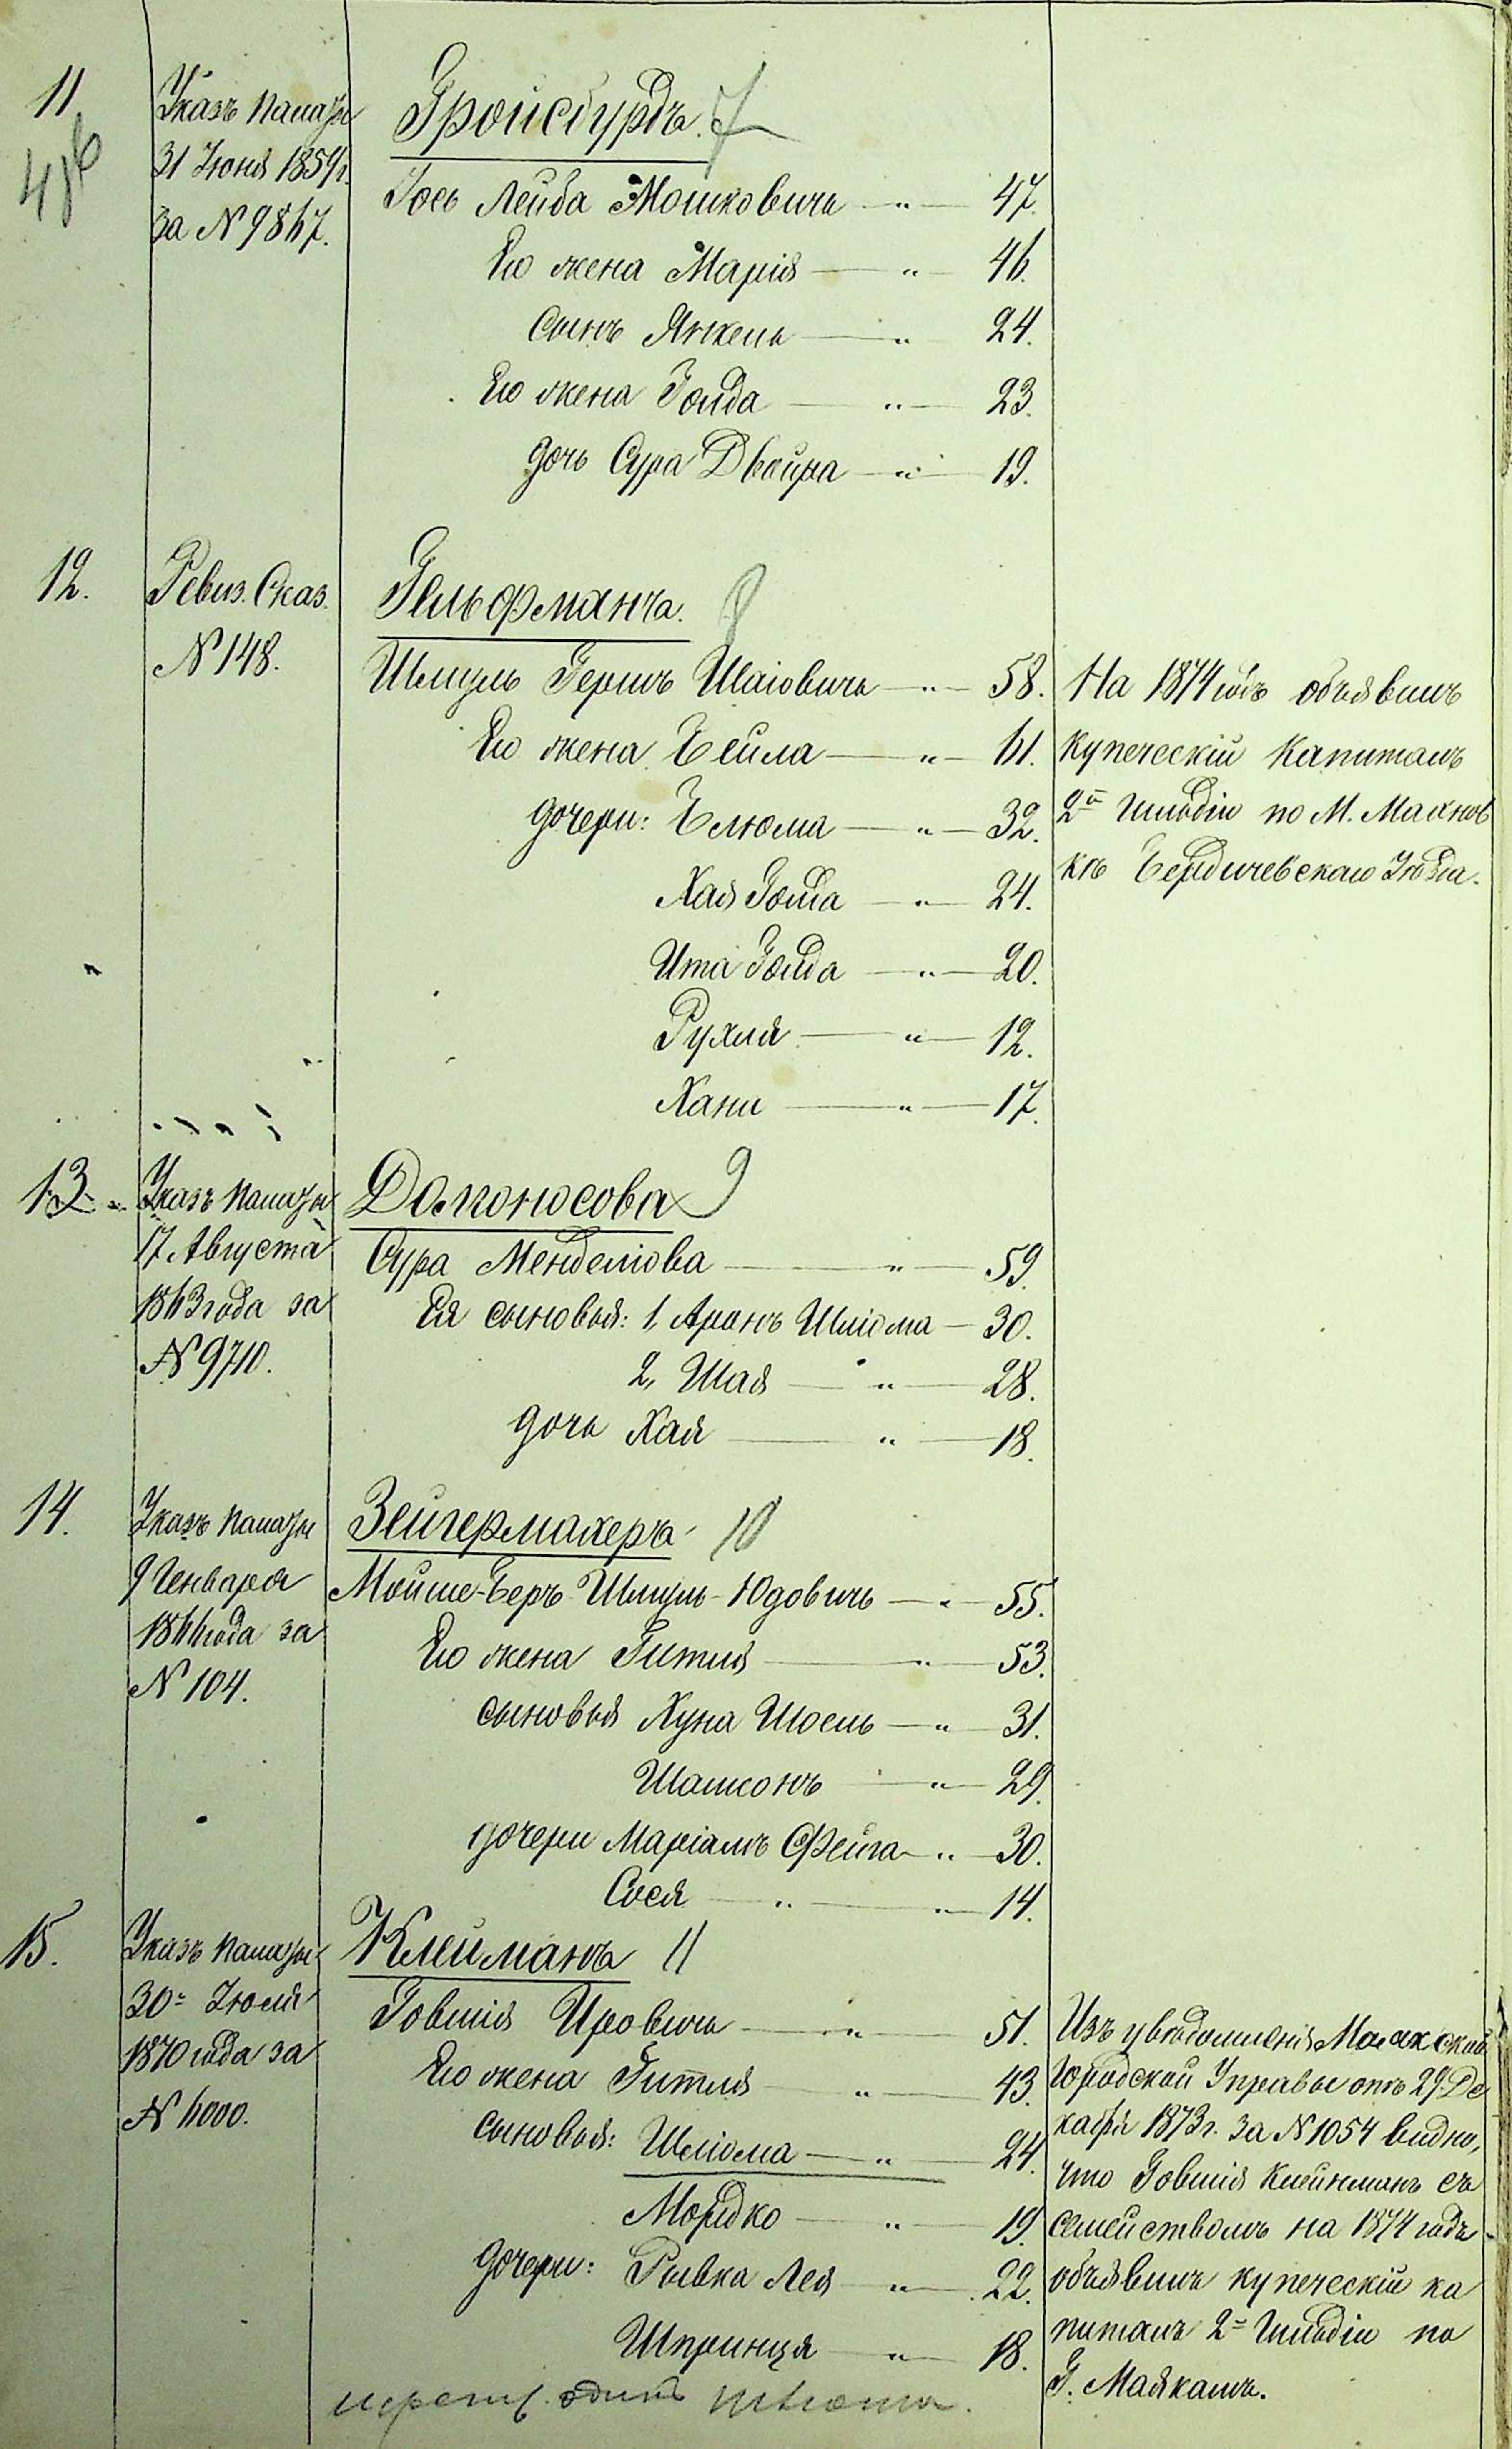 11. Указъ Палаты Гройсбурдъ. 7
486 31 Іюня 1859 г. Іось Лейба Мошковичъ — " — 47.
за № 9867. Его жена Марія — " — 46.
Сынъ Янкель — " 24.
Его жена Голда — " — 23.
дочь Сура Двойра — " — 19.
12. Ревиз. Сказ. Гельфманъ. 8
№ 148. Шмуль Гершъ Шаіовичъ — " — 58. На 1874 годъ объявилъ
Его жена Бейла — " — 61. купеческій капиталъ
дочери: Блюма — " — 32. 2й гильдіи по М. Махнов
Хая Голда — " — 24. кѣ Бердичевскаго Уѣзда.
Ита Голда — " — 20.
Рухля — " — 12.
Хани — " — 17.
13. Указъ Палаты Долгоносова 9
17 Августа Сура Менделіова — " — 59.
1863 года за Ея сыновья: 1, Аронъ Шліома — 30.
№ 9710. 2, Шая — " — 28.
дочь Хая — " — 18.
14. Указъ Палаты Зейгермахеръ 10
9 Генваря Мойше-Беръ Шмуль-Юдовичъ — " — 55.
1866 года за Его жена Гитля — " — 53.
№ 104. сыновья Хуна Шоель — " — 31.
Шамсонъ — " — 29.
дочери Маріамъ Фейга — " — 30.
Сося — " — 14.
15. Указъ Палаты Клейманъ 11
30= Іюля Говшія Ировичъ — " — 51. Изъ увѣдомленія Маякской
1870 года за Его жена Гитля — " — 43. Городской Управы отъ 29. Де
№ 6000. сыновья: Шліома — " — 24. кабря 1873 г. за № 1054 видно,
что Говшія Клейнманъ съ
Мордко — " — 19. семействомъ на 1874 годъ
дочери: Рывка Лея — " — 22. объявилъ купеческій ка
Шпринця — " — 18. питалъ 2= гильдіи по
Г. Маякамъ.
одинъ